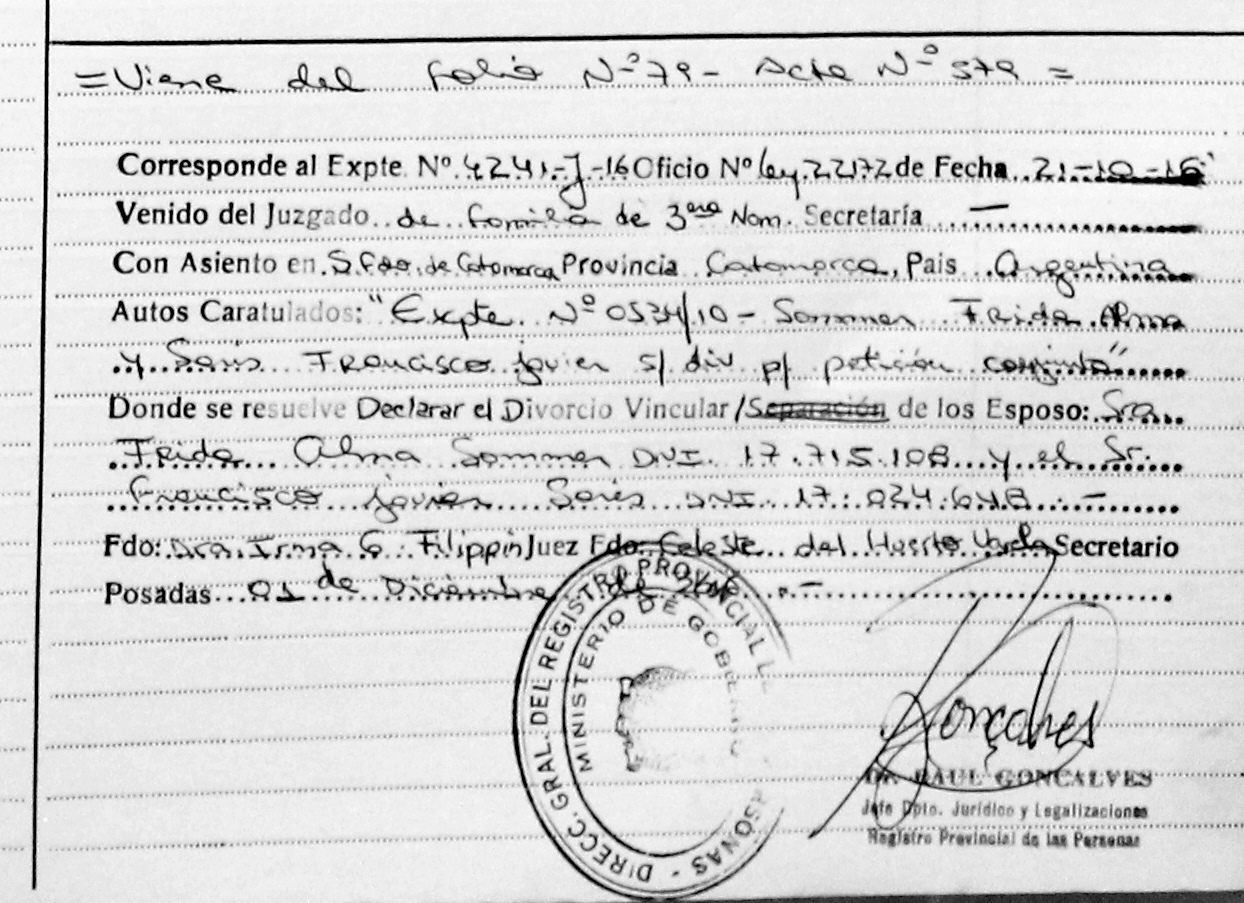 =Viene del folio Nº 79- Acta Nº 579 =
Corresponde al Expte. Nº 4241-J-16 Oficio Nº ley 22172 de Fecha 21-10-16
Venido del Juzgado de familia de 3era Nom. Secretaría —
Con Asiento en S. Fdo. de Catamarca Provincia Catamarca, Pais Argentina
Autos Caratulados: "Expte. Nº 0534/10 - Sommer Frida Alma
y Saris Francisco javier s/ div p/ petición conjunta"
Donde se resuelve Declarar el Divorcio Vincular/Separación de los Esposo: Sra.
Frida Alma Sommer DNI. 17.715.108 y el Sr.
Francisco javier Saris DNI 17.034.648.-
Fdo: Dra. Irma G. Filippin Juez Fdo: Celeste del Huerto Secretario
Posadas 01 de Diciembre de 2016.-
DIRECC. GRAL. DEL REGISTRO PROVINCIAL
MINISTERIO DE GOBIERNO
Gonçalves
Dr. RAUL GONCALVES
Jefe Dpto. Jurídico y Legalizaciones
Registro Provincial de las Personas